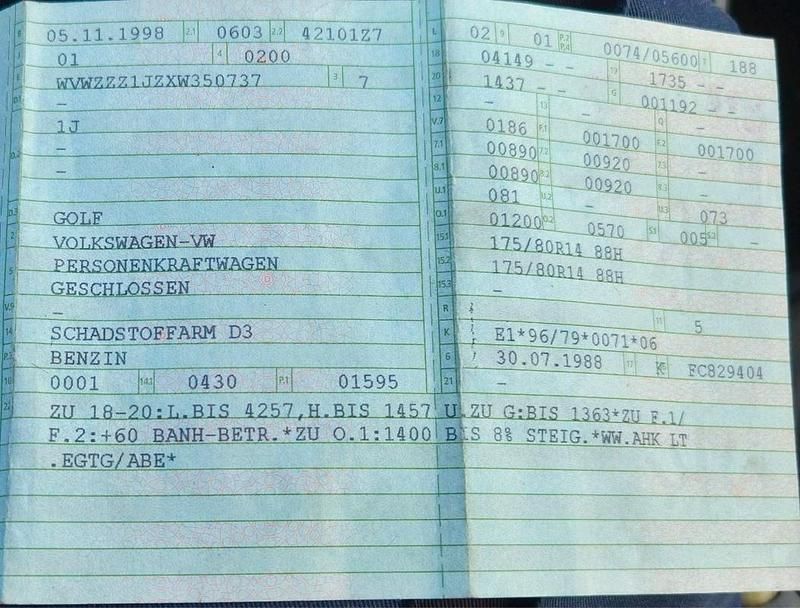 B 05.11.1998 2.1 0603 2.2 42101Z7
J 01 4 0200
E WVWZZZ1JZXW350737 3 7
–
1J
–
D.2 –
D.3 GOLF
2 VOLKSWAGEN-VW
PERSONENKRAFTWAGEN
5 GESCHLOSSEN
V.9 –
14 SCHADSTOFFARM D3
P.3 BENZIN
10 0001 14.1 0430 P.1 01595
L 02 9 01 P.2 P.4 0074/05600 T 188
18 04149 – – 19 1735 – –
20 1437 – – G 001192 – –
12 – 13 – Q –
V.7 0186 F.1 001700 F.2 001700
7.1 00890 7.2 00920 7.3 –
8.1 00890 8.2 00920 8.3 –
U.1 081 U.2 – U.3 073
O.1 01200 O.2 0570 S.1 005 S.2 –
15.1 175/80R14 88H
15.2 175/80R14 88H
15.3 –
R 11 5
K E1*96/79*0071*06
6 30.07.1988 17 K FC829404
21 –
22 ZU 18-20:L.BIS 4257,H.BIS 1457 U.ZU G:BIS 1363*ZU F.1/
F.2:+60 BANH-BETR.*ZU O.1:1400 BIS 8% STEIG.*WW.AHK LT
.EGTG/ABE*